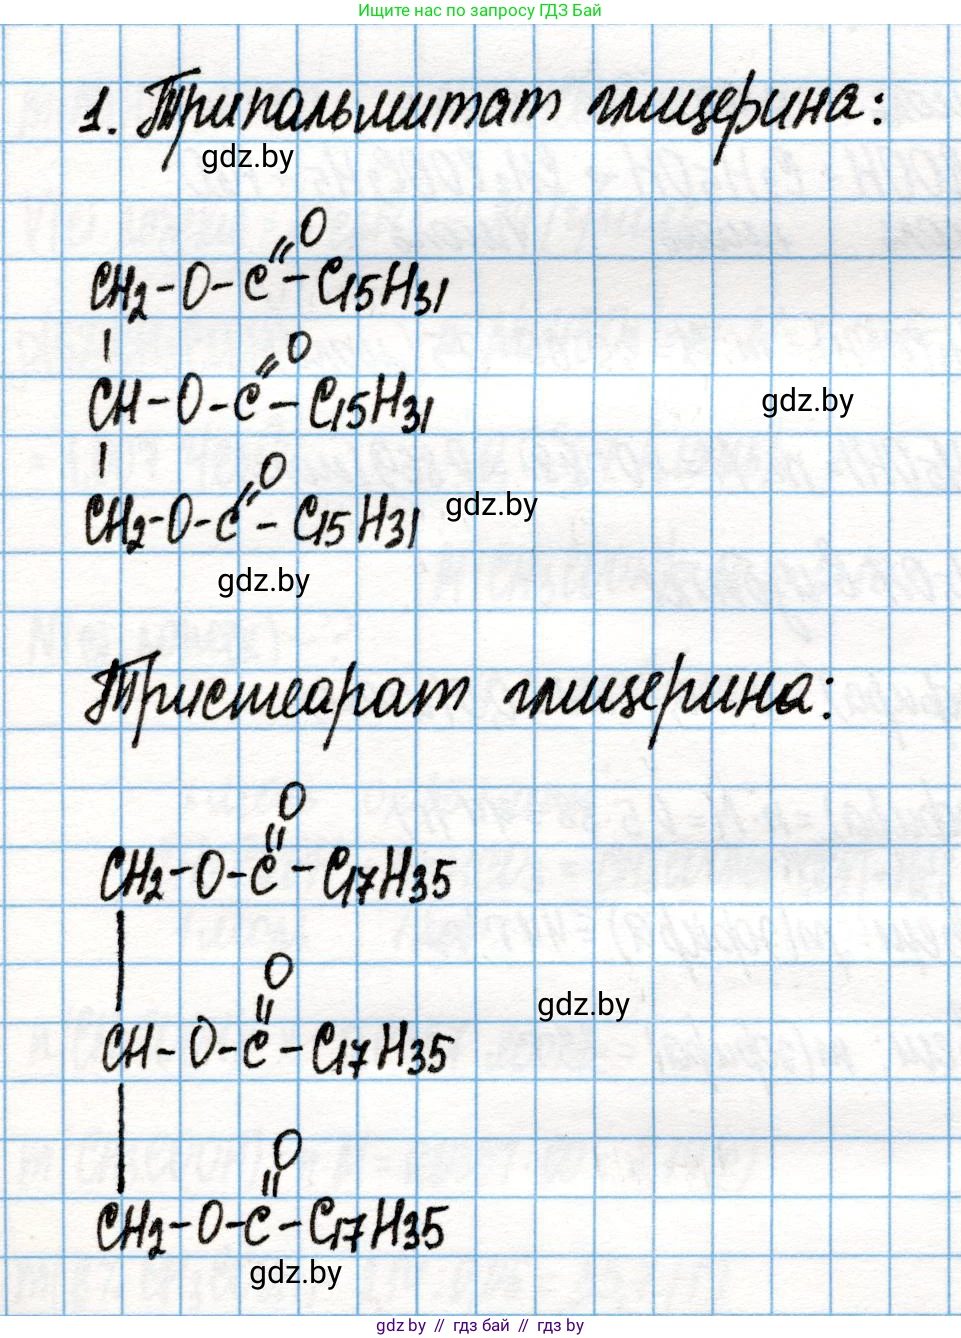 Ищите нас по запросу ГДЗ Бай
1. Трипальмитат глицерина:
gdz.by
O
CH2-O-C-C15H31
O
CH-O-C-C15H31
gdz.by
O
CH2-O-C-C15H31
gdz.by
gdz.by
Тристеарат глицерина:
O
CH2-O-C-C17H35
O
gdz.by
CH-O-C-C17H35
O
CH2-O-C-C17H35
gdz.by
gdz by // гдз бай // gdz by